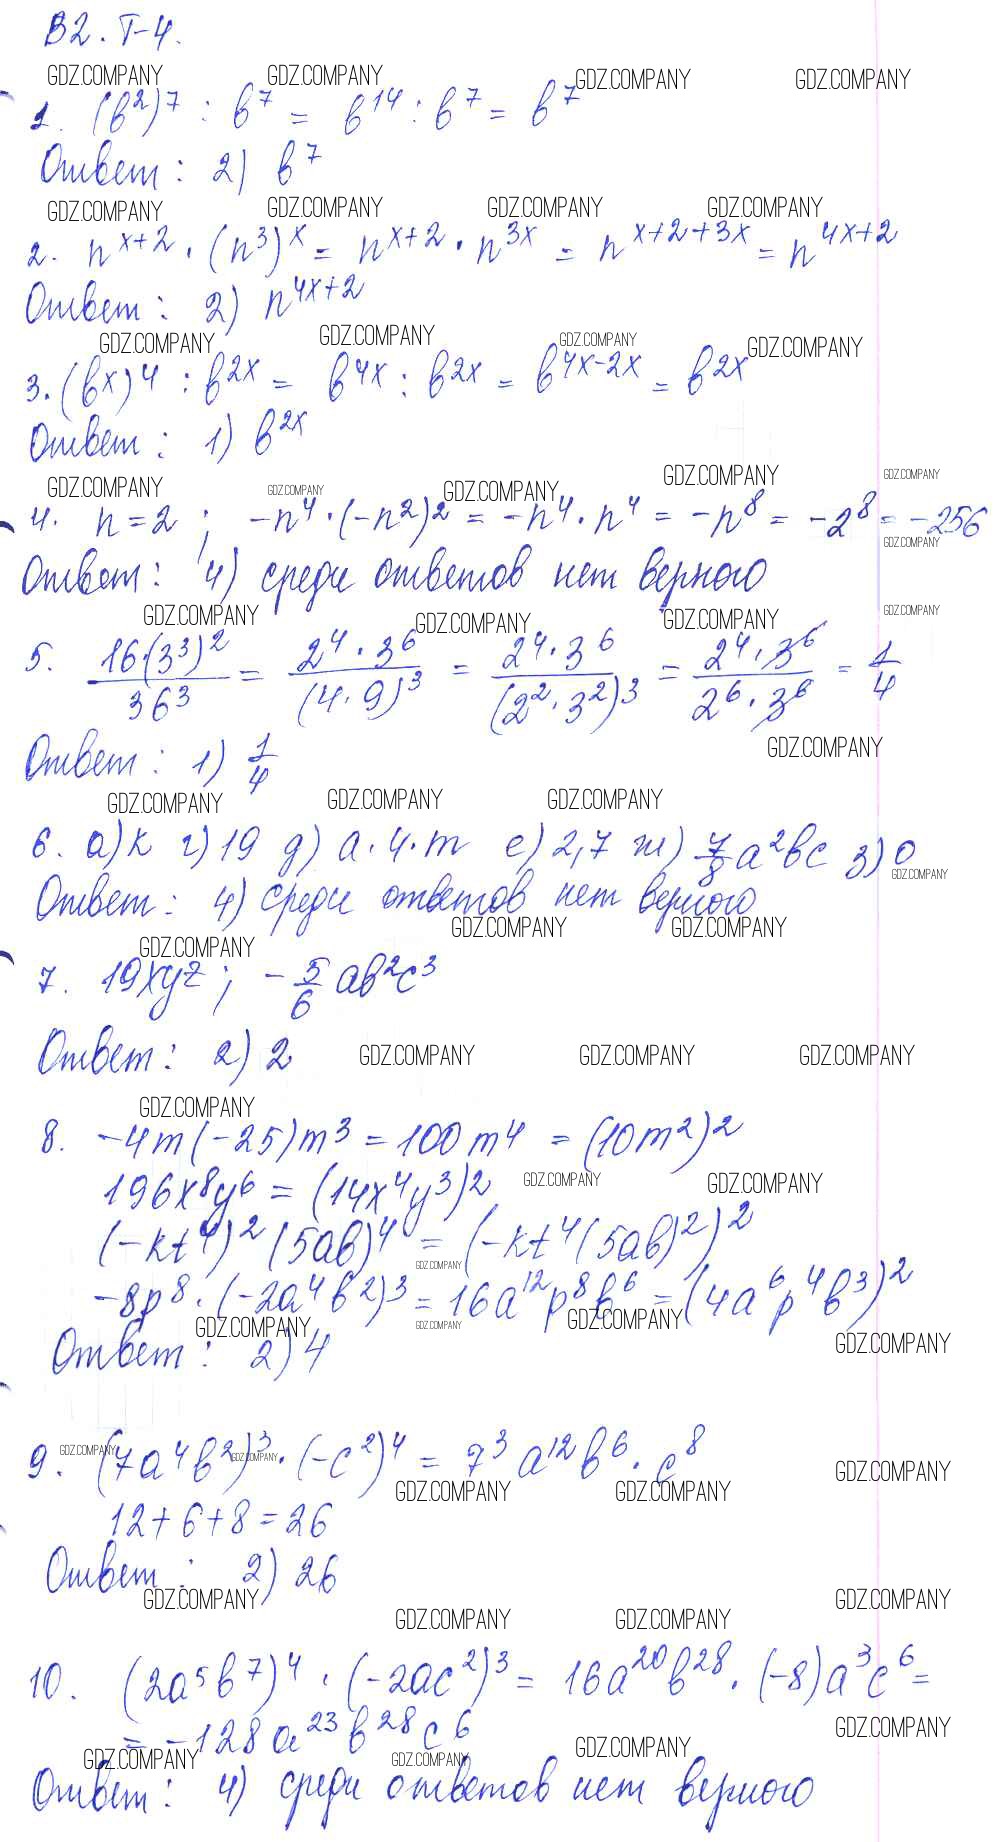 В2. Т-4.
GDZ.COMPANY GDZ.COMPANY GDZ.COMPANY GDZ.COMPANY
1. (b²)⁷ : b⁷ = b¹⁴ : b⁷ = b⁷
Ответ: 2) b⁷
GDZ.COMPANY GDZ.COMPANY GDZ.COMPANY GDZ.COMPANY
2. n^(x+2) · (n³)^x = n^(x+2) · n^(3x) = n^(x+2+3x) = n^(4x+2)
Ответ: 2) n^(4x+2)
GDZ.COMPANY GDZ.COMPANY GDZ.COMPANY GDZ.COMPANY
3. (b^x)⁴ : b^(2x) = b^(4x) : b^(2x) = b^(4x-2x) = b^(2x)
Ответ: 1) b^(2x)
GDZ.COMPANY GDZ.COMPANY GDZ.COMPANY GDZ.COMPANY GDZ.COMPANY
4. n = 2 ; -n⁴ · (-n²)² = -n⁴ · n⁴ = -n⁸ = -2⁸ = -256
GDZ.COMPANY
Ответ: 4) среди ответов нет верного
GDZ.COMPANY GDZ.COMPANY GDZ.COMPANY GDZ.COMPANY
5. 16·(3³)²/36³ = 2⁴·3⁶/(4·9)³ = 2⁴·3⁶/(2²·3²)³ = 2⁴·3⁶/2⁶·3⁶ = 1/4
Ответ: 1) 1/4
GDZ.COMPANY
GDZ.COMPANY GDZ.COMPANY GDZ.COMPANY
6. а) k г) 19 д) a·4·m е) 2,7 ж) 7/8 a²bc з) 0
GDZ.COMPANY
Ответ: 4) среди ответов нет верного
GDZ.COMPANY GDZ.COMPANY GDZ.COMPANY
7. 19xyz ; -5/6 ab²c³
Ответ: 2) 2
GDZ.COMPANY GDZ.COMPANY GDZ.COMPANY
GDZ.COMPANY
8. -4m(-25)m³ = 100m⁴ = (10m²)²
196x⁸y⁶ = (14x⁴y³)²
GDZ.COMPANY GDZ.COMPANY
(-kt⁴)²(5ab)⁴ = (-kt⁴(5ab)²)²
GDZ.COMPANY
-8p⁸ · (-2a⁴b²)³ = 16a¹²p⁸b⁶ = (4a⁶p⁴b³)²
GDZ.COMPANY GDZ.COMPANY GDZ.COMPANY GDZ.COMPANY
Ответ: 2) 4
GDZ.COMPANY GDZ.COMPANY
9. (7a⁴b²)³ · (-c²)⁴ = 7³a¹²b⁶ · c⁸
GDZ.COMPANY GDZ.COMPANY GDZ.COMPANY
12 + 6 + 8 = 26
Ответ: 2) 26
GDZ.COMPANY GDZ.COMPANY GDZ.COMPANY GDZ.COMPANY
10. (2a⁵b⁷)⁴ · (-2ac²)³ = 16a²⁰b²⁸ · (-8)a³c⁶ =
= -128a²³b²⁸c⁶
GDZ.COMPANY GDZ.COMPANY GDZ.COMPANY GDZ.COMPANY
Ответ: 4) среди ответов нет верного